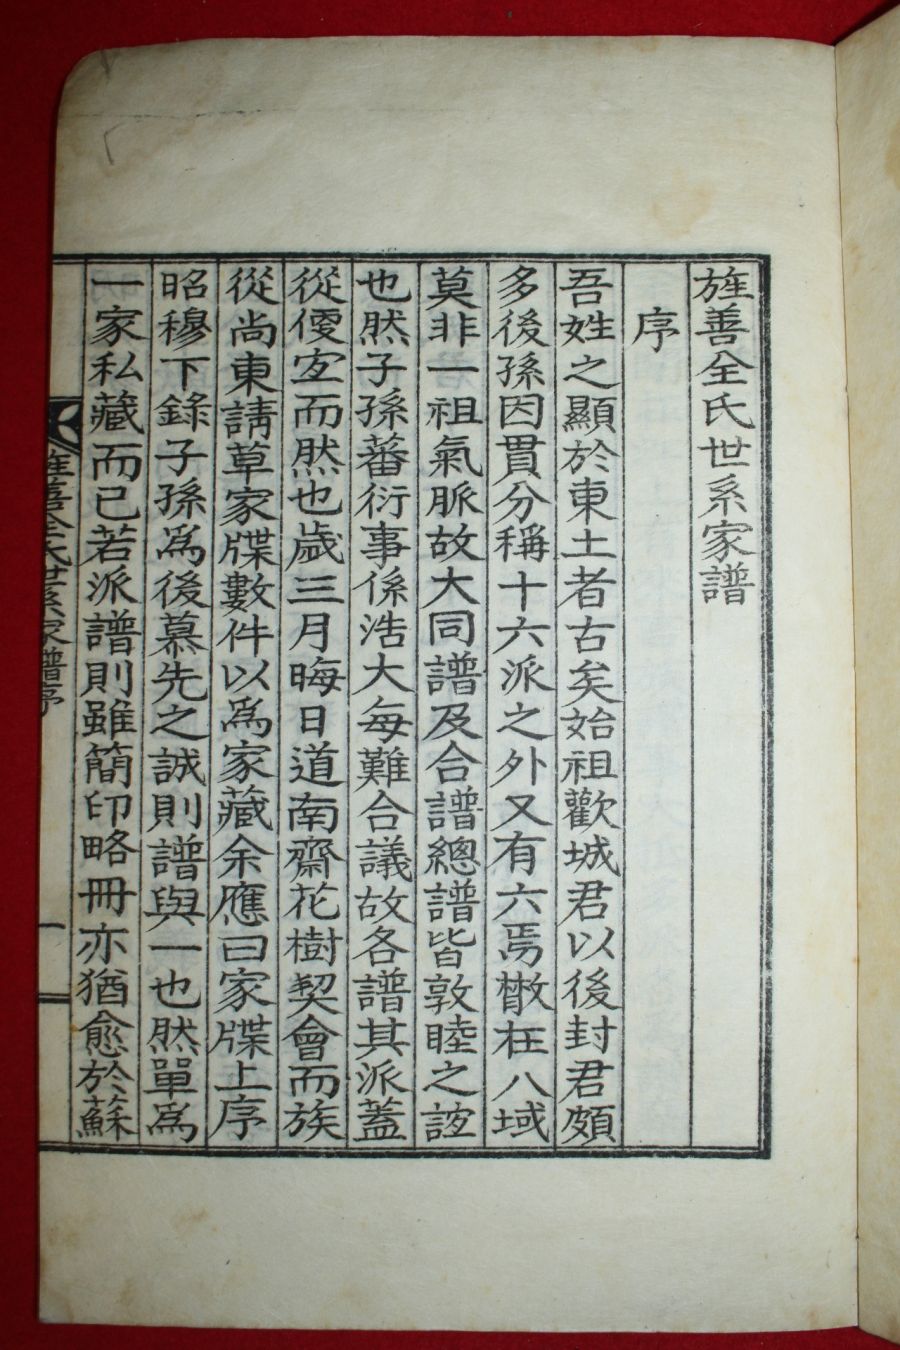 旌善全氏世系家譜
序
吾姓之顯於東土者古矣始祖歡城君以後封君頗
多後孫因貫分稱十六派之外又有六焉散在八域
莫非一祖氣脈故大同譜及合譜總譜皆敦睦之誼
也然子孫蕃衍事係浩大每難合議故各譜其派蓋
從便宜而然也歲三月晦日道南齋花樹契會而族
從尚東請草家牒數件以爲家藏余應曰家牒上序
昭穆下錄子孫爲後慕先之誠則譜與一也然單爲
一家私藏而已若派譜則雖簡印略冊亦猶愈於蘇
旌善全氏世系家譜序
一